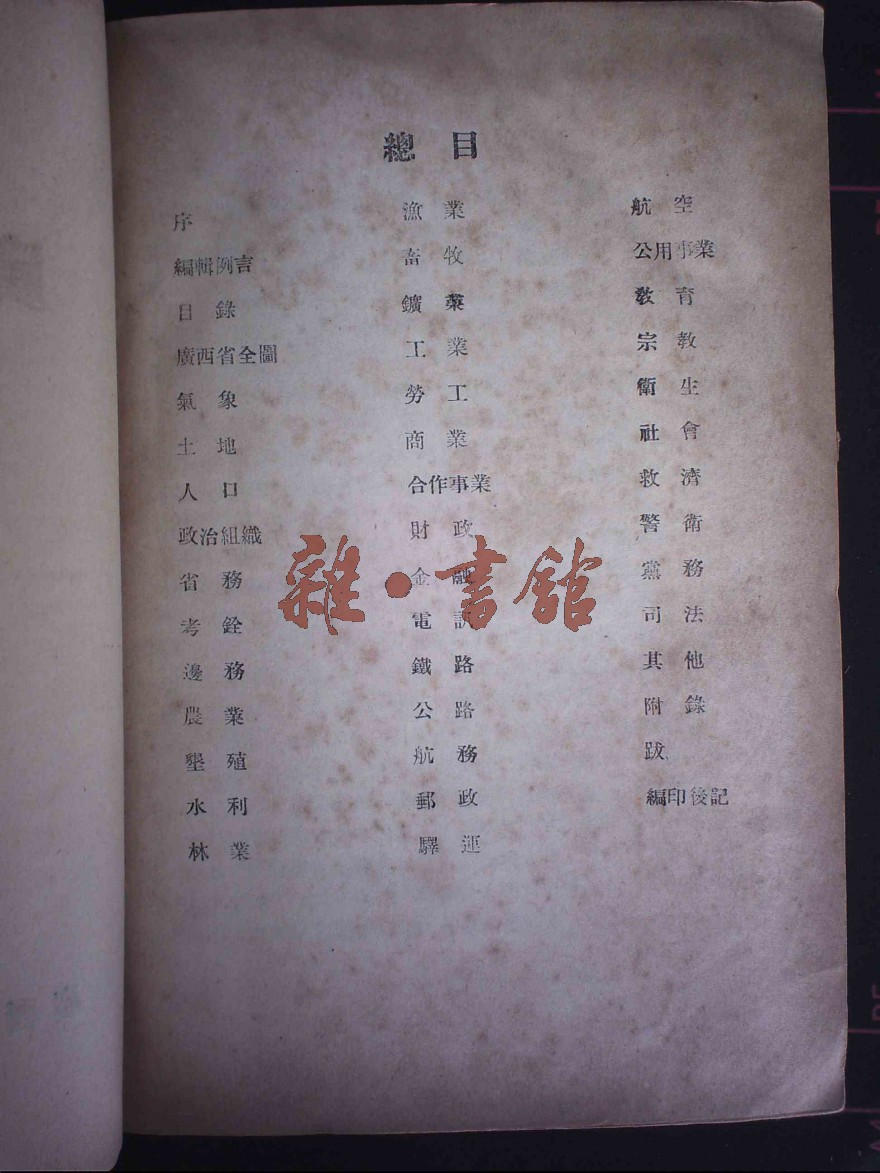 總目
序
編輯例言
目錄
廣西省全圖
氣象
土地
人口
政治組織
省務
考銓
邊務
農業
墾殖
水利
林業
漁業
畜牧
鑛業
工業
勞工
商業
合作事業
財政
金融
電訊
鐵路
公路
航務
郵政
驛運
航空
公用事業
教育
宗教
衛生
社會
救濟
警衛
黨務
司法
其他
附錄
跋
編印後記
雜·書館